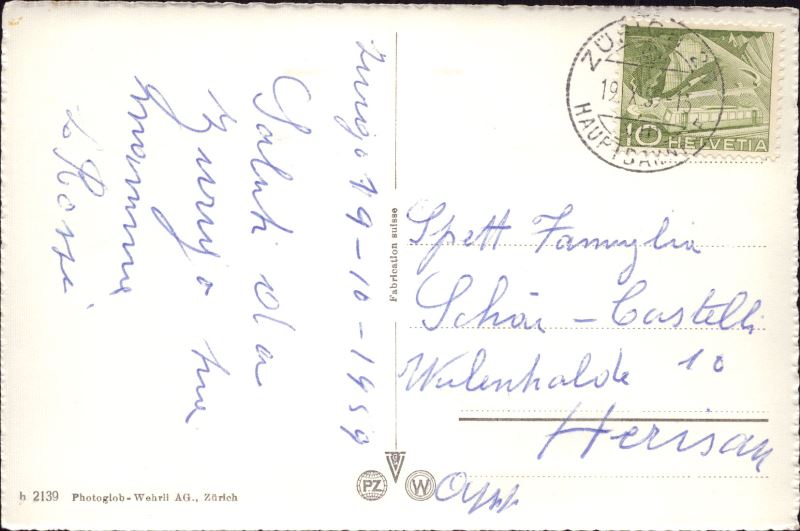 Zurigo 19-10-1959
Saluti da
Zurigo tua
mamma
e Rossi
Spett Famiglia
Schär - Castelli
Wulenhalde 10
Herisau
App
Fabrication suisse
h 2139 Photoglob-Wehrli AG., Zürich
PZ
W
ZÜRICH
19.X.5
HAUPTBAHNHOF
10 HELVETIA